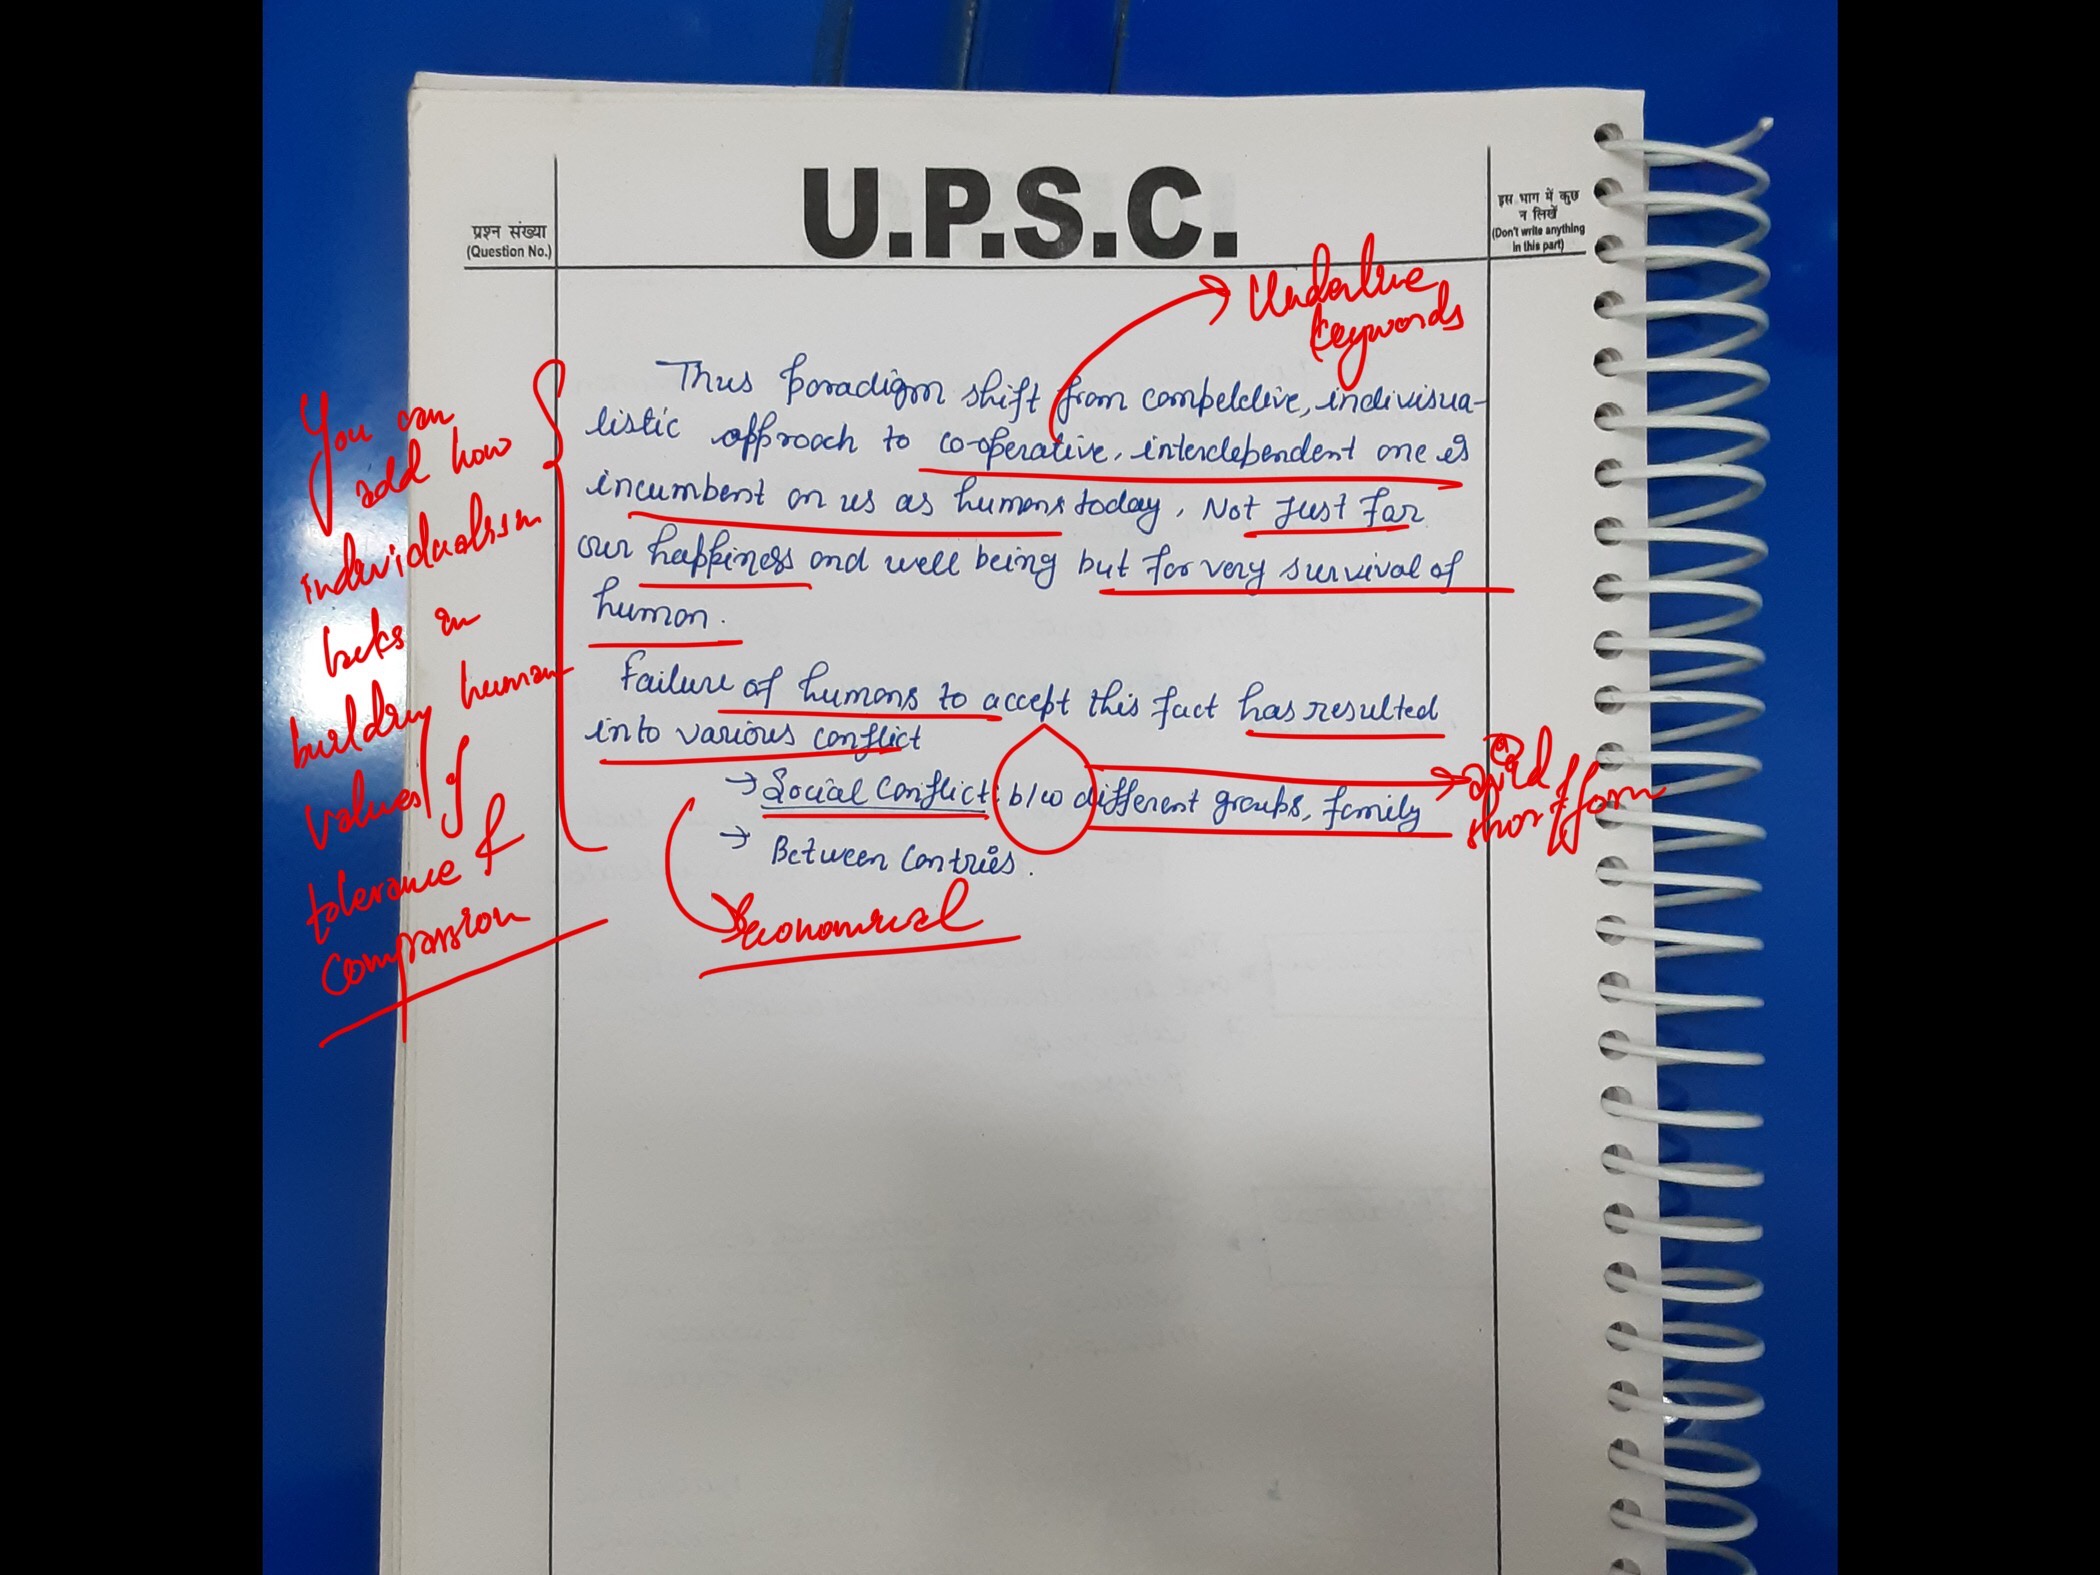 U.P.S.C.
प्रश्न संख्या
(Question No.)
इस भाग में कुछ
न लिखें
(Don't write anything
in this part)
Underline
keywords
Thus paradigm shift from competetive, indivisua-
listic approach to co-operative, interdependent one is
incumbent on us as humans today, Not Just For
our happiness and well being but for very survival of
human.
Failure of humans to accept this fact has resulted
into various conflict
→ Social Conflict: b/w different groups, family
→ Between Contries.
You can
add how
individualism
lacks in
building human
values of
tolerance &
compassion
avoid
short form
Economical